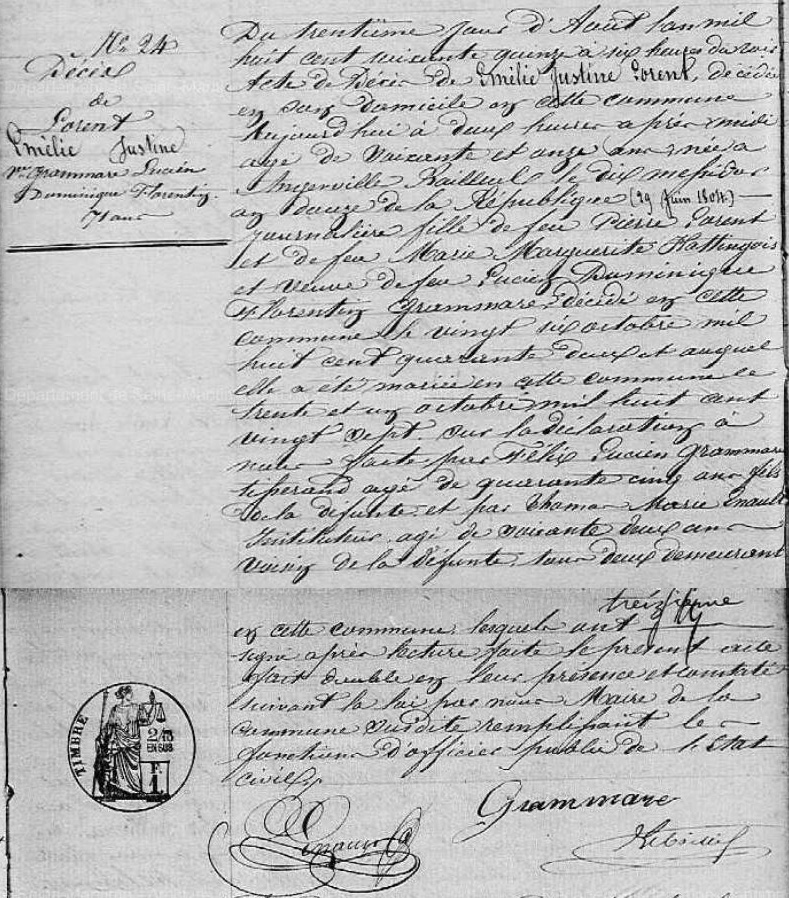 N° 24
Décès
de
Lorent
Emélie Justine
Vve Grammare Lucien
Dominique Florentin
71 ans
Du trentième jour d'Août l'an mil
huit cent soixante quinze à six heures du soir
Acte de Décès de Emélie Justine Lorent, décédée
en son domicile en cette commune
Aujourd'hui à deux heures après midi
agé de soixante et onze ans née à
Angerville Bailleul le dix messidor
an douze de la République (29 Juin 1804)
journalière fille de feu Pierre Lorent
et de feu Marie Marguerite Hattingois
et veuve de feu Lucien Dumeinique
Florentin Grammare décédé en cette
commune le vingt six octobre mil
huit cent quarante deux et auquel
elle a été mariée en cette commune le
trente et un octobre mil huit cent
vingt sept. Sur la déclaration à
nous faite par Félix Lucien Grammare
tiserand agé de quarante cinq ans fils
de la défunte et par Thomas Marie Enault
Instituteur agé de soixante deux ans
voisin de la défunte tous deux demeurant
treizième
en cette commune lesquels ont
signé après lecture faite le présent acte
fait double en leur présence et constaté
suivant la loi par nous Maire de la
commune susdite remplissant les
fonctions d'officier public de l'Etat
civil
TIMBRE
2/10
EN SUS
F.
1
Grammare
Enault